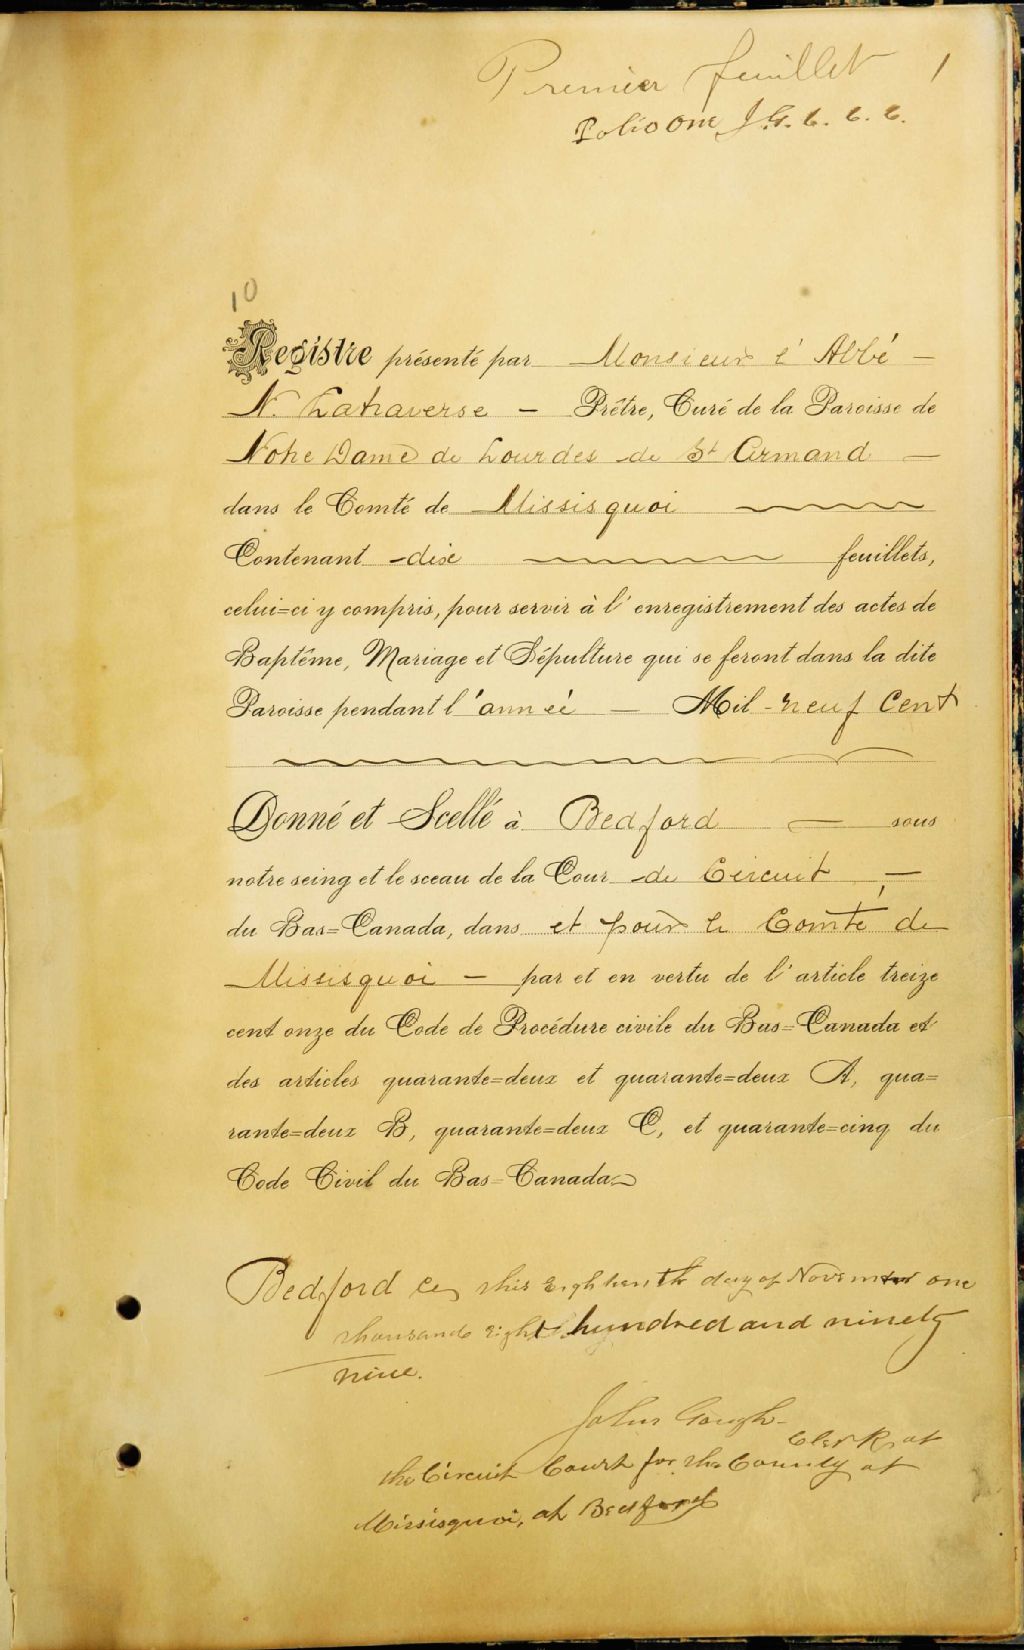 Premier feuillet 1
Folio One J.G. C. C. C.
10
Registre présenté par Monsieur l' Abbé
N. Lataverse - Prêtre, Curé de la Paroisse de
Notre Dame de Lourdes de St Armand
dans le Comté de Missisquoi
Contenant dix feuillets,
celui=ci y compris, pour servir à l' enregistrement des actes de
Baptême, Mariage et Sépulture qui se feront dans la dite
Paroisse pendant l'année - Mil-neuf Cent
Donné et Scellé à Bedford - sous
notre seing et le sceau de la Cour de Circuit -
du Bas=Canada, dans et pour le Comté de
Missisquoi - par et en vertu de l' article treize
cent onze du Code de Procédure civile du Bas=Canada et
des articles quarante=deux et quarante=deux A, qua=
rante=deux B, quarante=deux C, et quarante=cinq du
Code Civil du Bas=Canada
Bedford ce this Eighteenth day of November one
thousand eight hundred and ninety
nine.
John Gough
Clerk of
the Circuit Court for the County of
Missisquoi, at Bedford